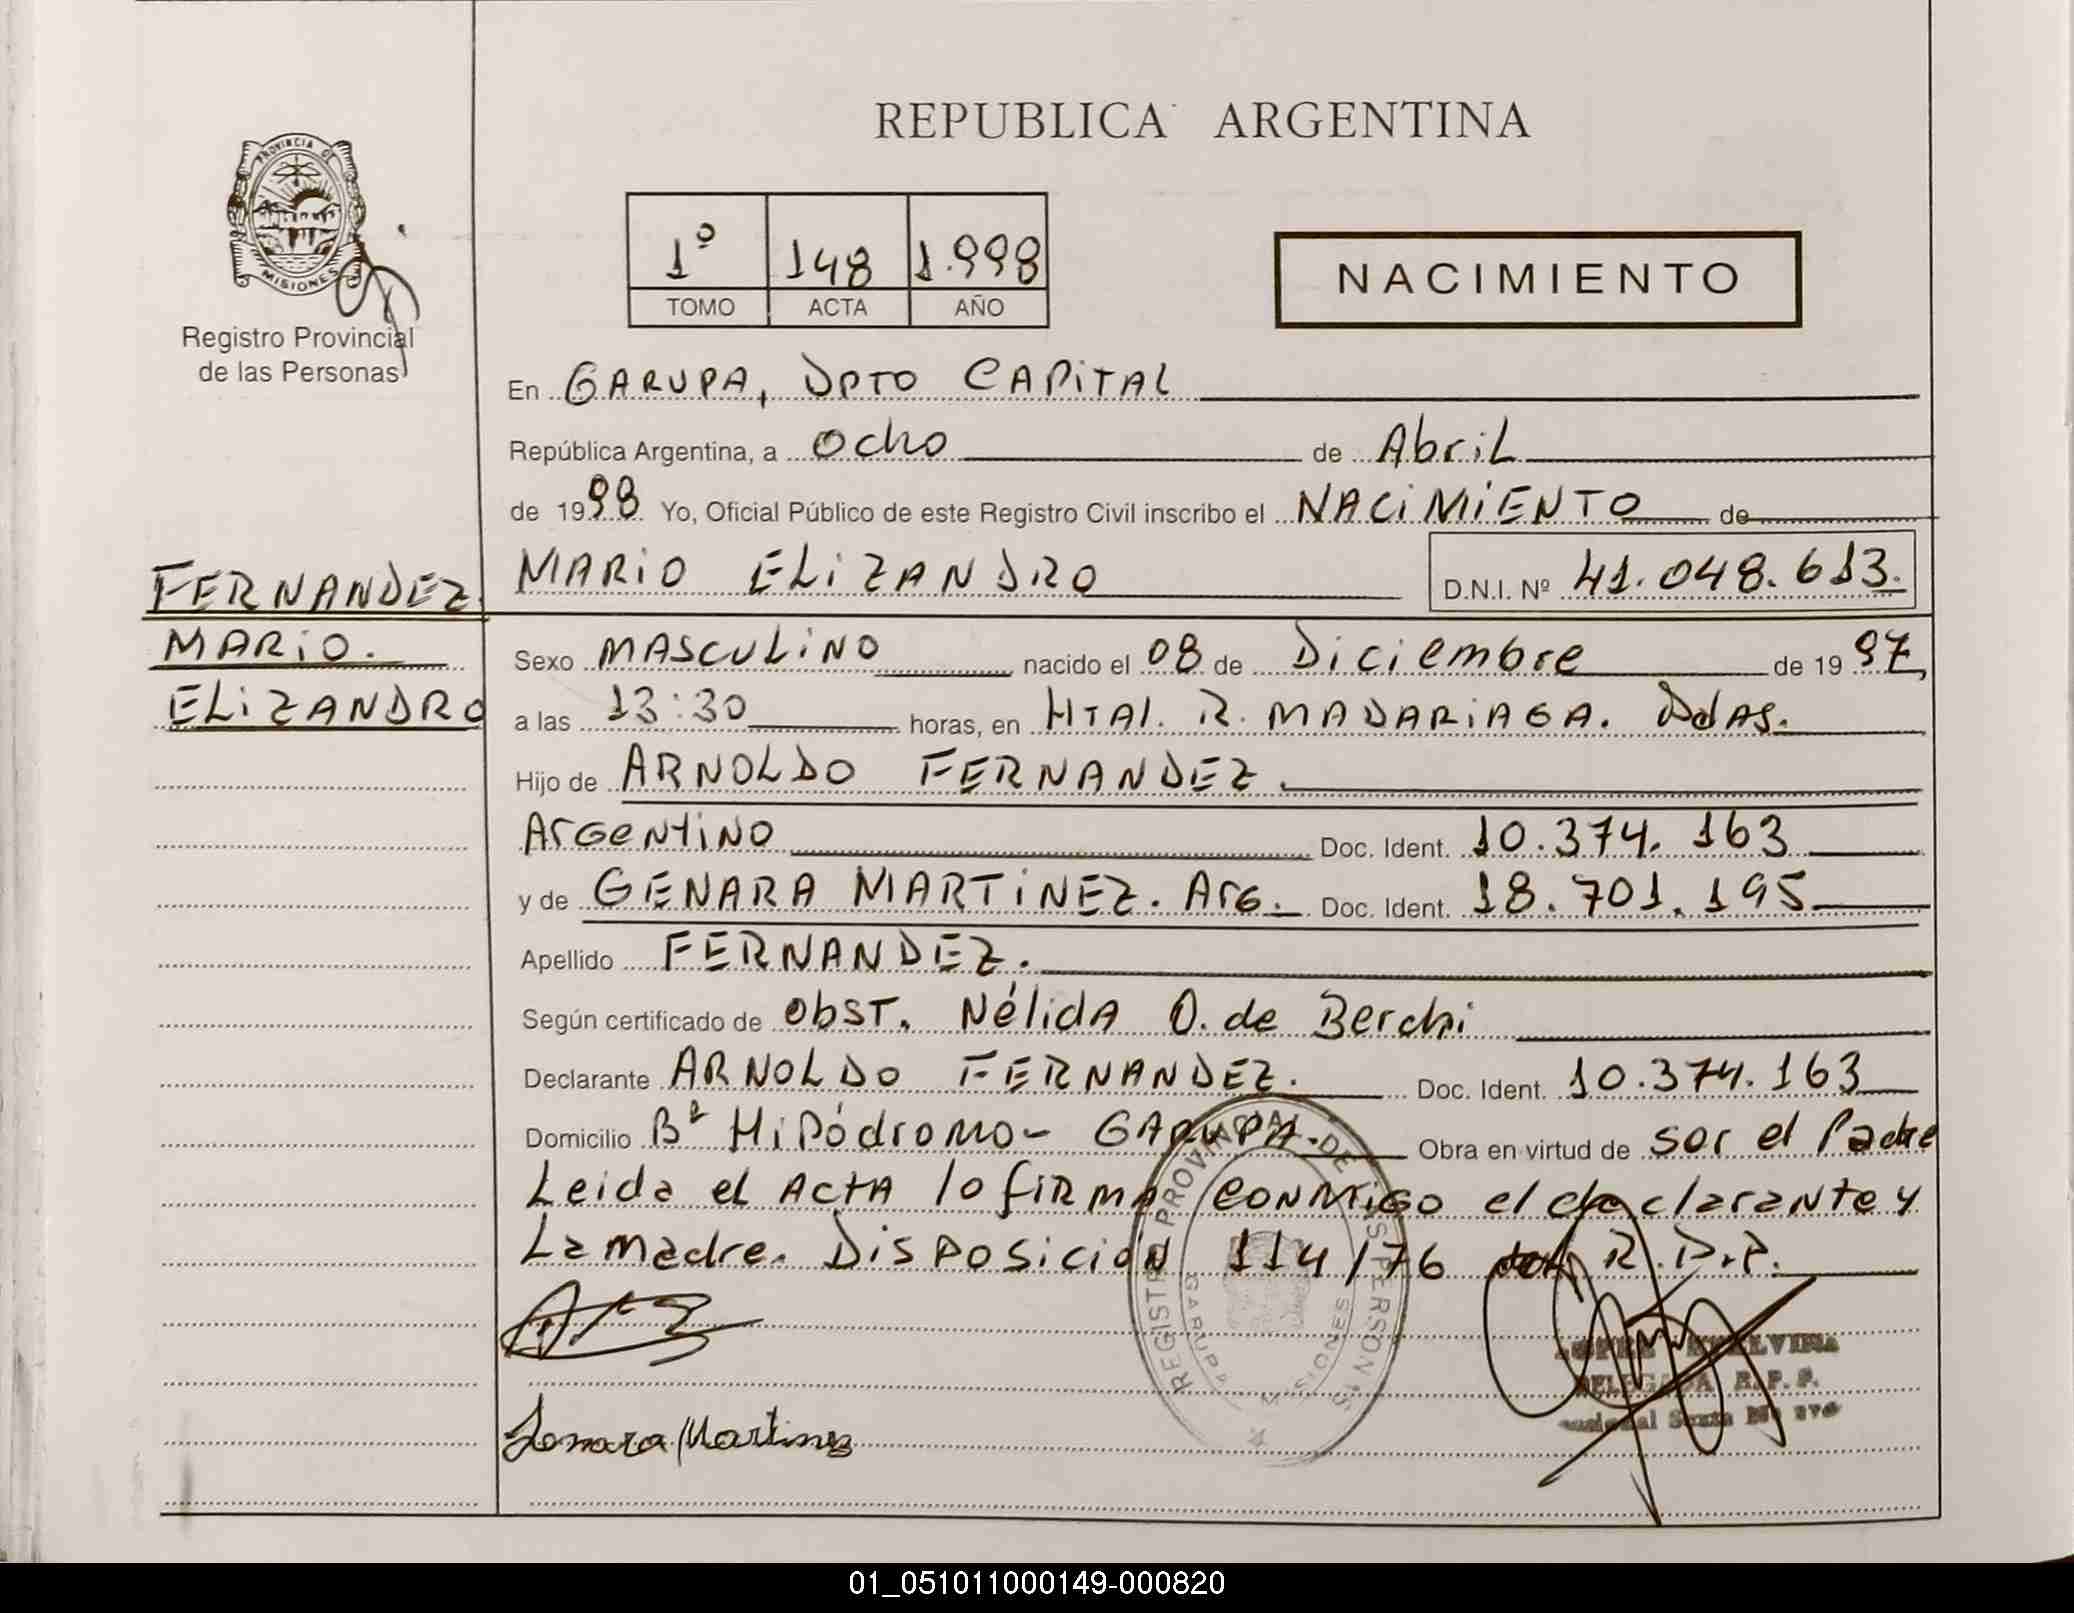 REPUBLICA ARGENTINA
PROVINCIA DE
MISIONES
Registro Provincial
de las Personas
1º 148 1.998
TOMO ACTA AÑO
NACIMIENTO
En GARUPA, DPTO CAPITAL
República Argentina, a Ocho de Abril
de 1998 Yo, Oficial Público de este Registro Civil inscribo el NACIMIENTO de
FERNANDEZ
MARIO.
ELIZANDRO
MARIO ELIZANDRO D.N.I. Nº 41.048.613.
Sexo MASCULINO nacido el 08 de Diciembre de 1997
a las 13:30 horas, en HTAl. R. MADARIAGA. PdAS.
Hijo de ARNOLDO FERNANDEZ.
ArGeNtiNO Doc. Ident. 10.374.163
y de GENARA MARTINEZ. ArG. Doc. Ident. 18.701.195
Apellido FERNANDEZ.
Según certificado de ObST. Nélida O. de Berchi
Declarante ARNOLDO FERNANDEZ. Doc. Ident. 10.374.163
Domicilio Bº HiPódromo- GARUPA. Obra en virtud de ser el Padre
Leida el ActA lo firma CONMIGO el declarante y
La madre. DisPosición 114/76 del R.P.P.
REGISTRO PROVINCIAL DE LAS PERSONAS
GARUPA MISIONES
DELEGADA R.P.P.
01_051011000149-000820